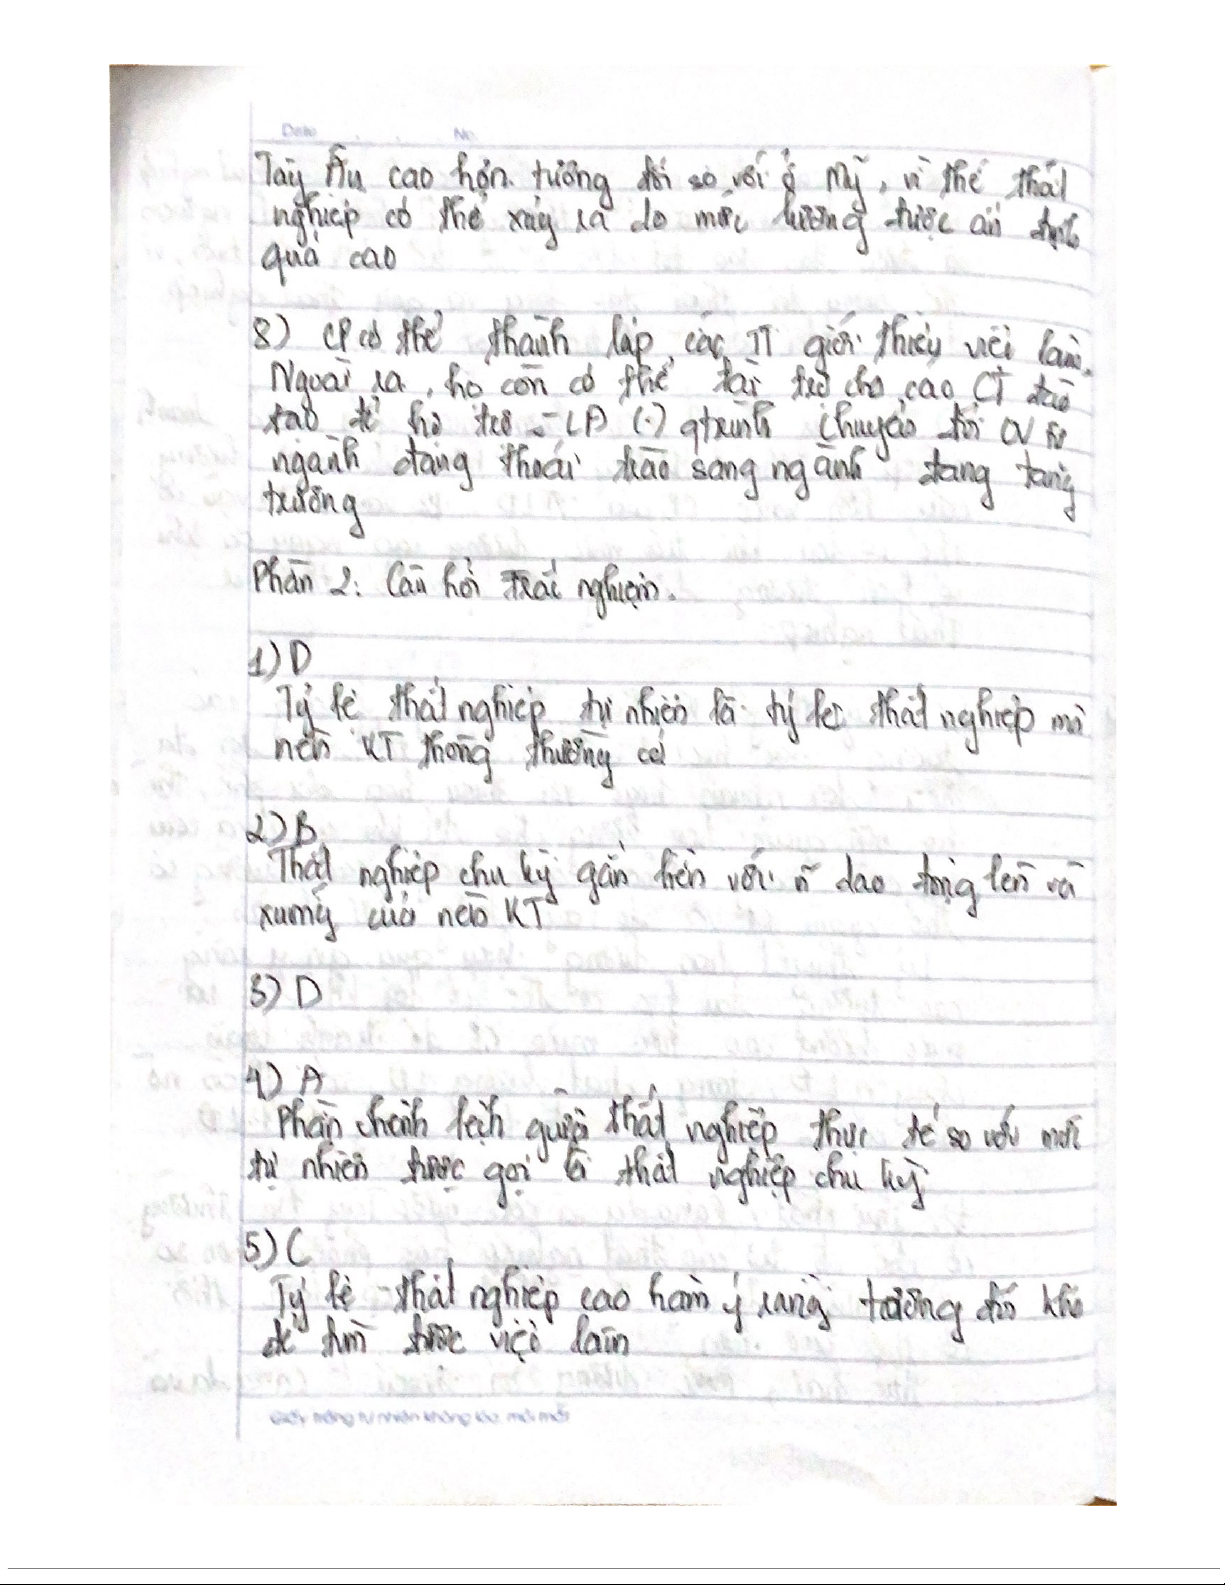 Date No.
Tây Âu cao hơn tương đối so với ở Mỹ, vì thế thất
nghiệp có thể xảy ra do mức lương được ấn định
quá cao
8) CP có thể thành lập các TT giới thiệu việc làm.
Ngoài ra, họ còn có thể tài trợ cho các CT đào
tạo để hỗ trợ LĐ (.) qtrình chuyển đổi CV từ
ngành đang thoái trào sang ngành đang tăng
trưởng
Phần 2: Câu hỏi trắc nghiệm.
1) D
Tỷ lệ thất nghiệp tự nhiên là tỷ lệ thất nghiệp mà
nền KT thông thường có
2) B
Thất nghiệp chu kỳ gắn liền với dao động lên và
xuống của nền KT
3) D
4) A
Phần chênh lệch giữa thất nghiệp thực tế so với mức
tự nhiên được gọi là thất nghiệp chu kỳ
5) C
Tỷ lệ thất nghiệp cao hàm ý rằng tương đối khó
để tìm được việc làm
Giấy trắng tự nhiên không lóa, mỏi mắt